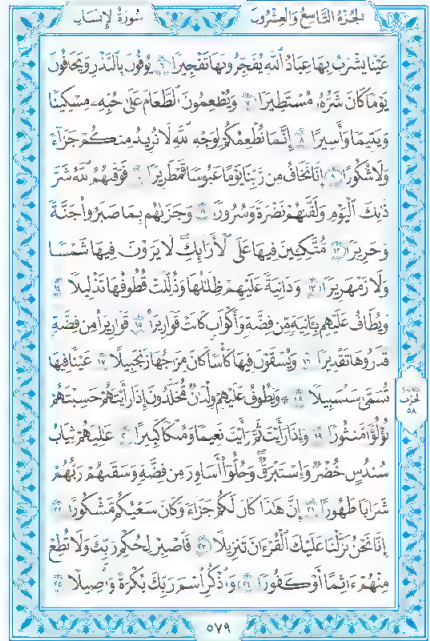 الجزء التاسع والعشرون
سورة الإنسان
عَيْنًا يَشْرَبُ بِهَا عِبَادُ اللَّهِ يُفَجِّرُونَهَا تَفْجِيرًا ٦ يُوفُونَ بِالنَّذْرِ وَيَخَافُونَ
يَوْمًا كَانَ شَرُّهُ مُسْتَطِيرًا ٧ وَيُطْعِمُونَ الطَّعَامَ عَلَىٰ حُبِّهِ مِسْكِينًا
وَيَتِيمًا وَأَسِيرًا ٨ إِنَّمَا نُطْعِمُكُمْ لِوَجْهِ اللَّهِ لَا نُرِيدُ مِنكُمْ جَزَاءً
وَلَا شُكُورًا ٩ إِنَّا نَخَافُ مِن رَّبِّنَا يَوْمًا عَبُوسًا قَمْطَرِيرًا ١٠ فَوَقَاهُمُ اللَّهُ شَرَّ
ذَٰلِكَ الْيَوْمِ وَلَقَّاهُمْ نَضْرَةً وَسُرُورًا ١١ وَجَزَاهُم بِمَا صَبَرُوا جَنَّةً
وَحَرِيرًا ١٢ مُّتَّكِئِينَ فِيهَا عَلَى الْأَرَائِكِ لَا يَرَوْنَ فِيهَا شَمْسًا
وَلَا زَمْهَرِيرًا ١٣ وَدَانِيَةً عَلَيْهِمْ ظِلَالُهَا وَذُلِّلَتْ قُطُوفُهَا تَذْلِيلًا ١٤
وَيُطَافُ عَلَيْهِم بِآنِيَةٍ مِّن فِضَّةٍ وَأَكْوَابٍ كَانَتْ قَوَارِيرَا ١٥ قَوَارِيرَا مِن فِضَّةٍ
قَدَّرُوهَا تَقْدِيرًا ١٦ وَيُسْقَوْنَ فِيهَا كَأْسًا كَانَ مِزَاجُهَا زَنجَبِيلًا ١٧ عَيْنًا فِيهَا
تُسَمَّىٰ سَلْسَبِيلًا ١٨ ۞ وَيَطُوفُ عَلَيْهِمْ وِلْدَانٌ مُّخَلَّدُونَ إِذَا رَأَيْتَهُمْ حَسِبْتَهُمْ
لُؤْلُؤًا مَّنثُورًا ١٩ وَإِذَا رَأَيْتَ ثَمَّ رَأَيْتَ نَعِيمًا وَمُلْكًا كَبِيرًا ٢٠ عَالِيَهُمْ ثِيَابُ
سُندُسٍ خُضْرٌ وَإِسْتَبْرَقٌ وَحُلُّوا أَسَاوِرَ مِن فِضَّةٍ وَسَقَاهُمْ رَبُّهُمْ
شَرَابًا طَهُورًا ٢١ إِنَّ هَٰذَا كَانَ لَكُمْ جَزَاءً وَكَانَ سَعْيُكُم مَّشْكُورًا ٢٢
إِنَّا نَحْنُ نَزَّلْنَا عَلَيْكَ الْقُرْآنَ تَنزِيلًا ٢٣ فَاصْبِرْ لِحُكْمِ رَبِّكَ وَلَا تُطِعْ
مِنْهُمْ آثِمًا أَوْ كَفُورًا ٢٤ وَاذْكُرِ اسْمَ رَبِّكَ بُكْرَةً وَأَصِيلًا ٢٥
الحزب
٥٨
٥٧٩